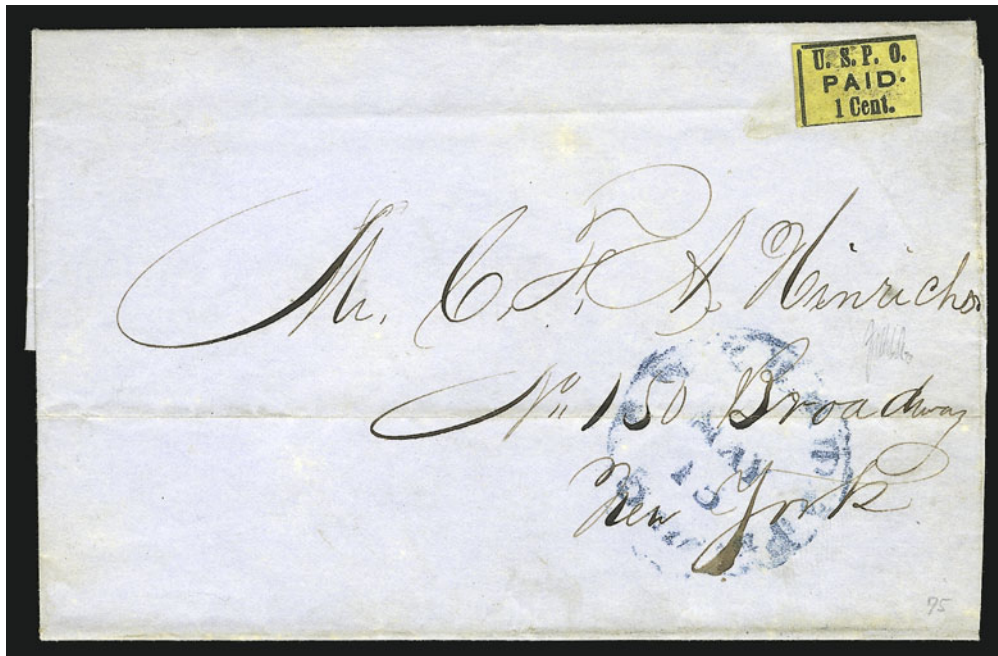 U. S. P. O.
PAID.
1 Cent.
Mr. C. F. A. Hinrichs.
No. 150 Broadway
New York
MAY
15
75